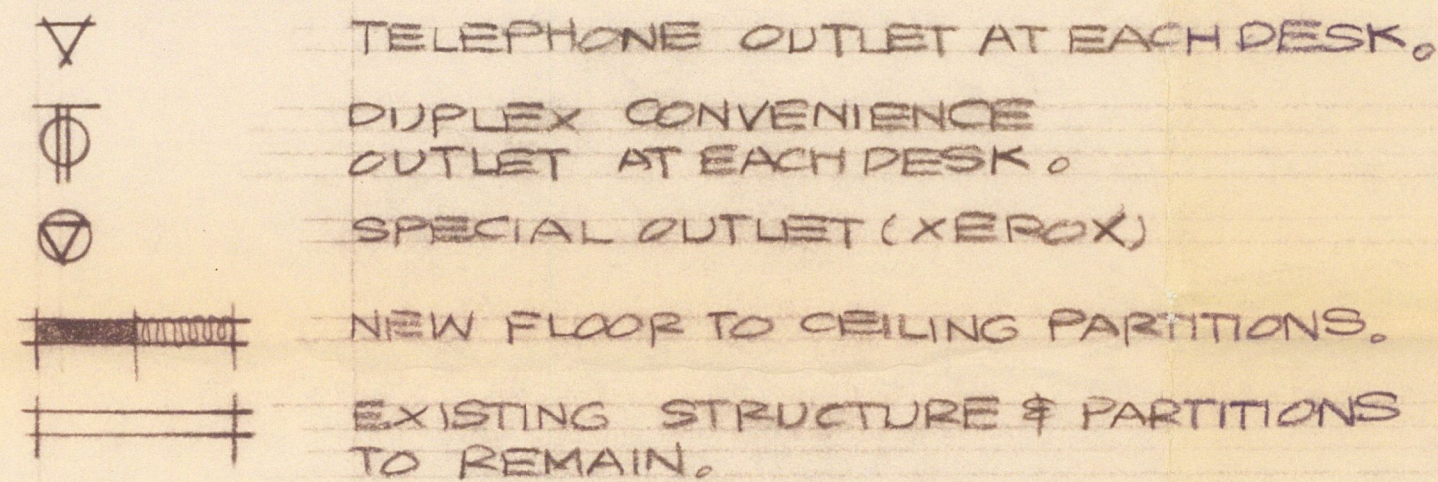 TELEPHONE OUTLET AT EACH DESK.
DUPLEX CONVENIENCE
OUTLET AT EACH DESK.
SPECIAL OUTLET (XEROX)
NEW FLOOR TO CEILING PARTITIONS.
EXISTING STRUCTURE & PARTITIONS
TO REMAIN.